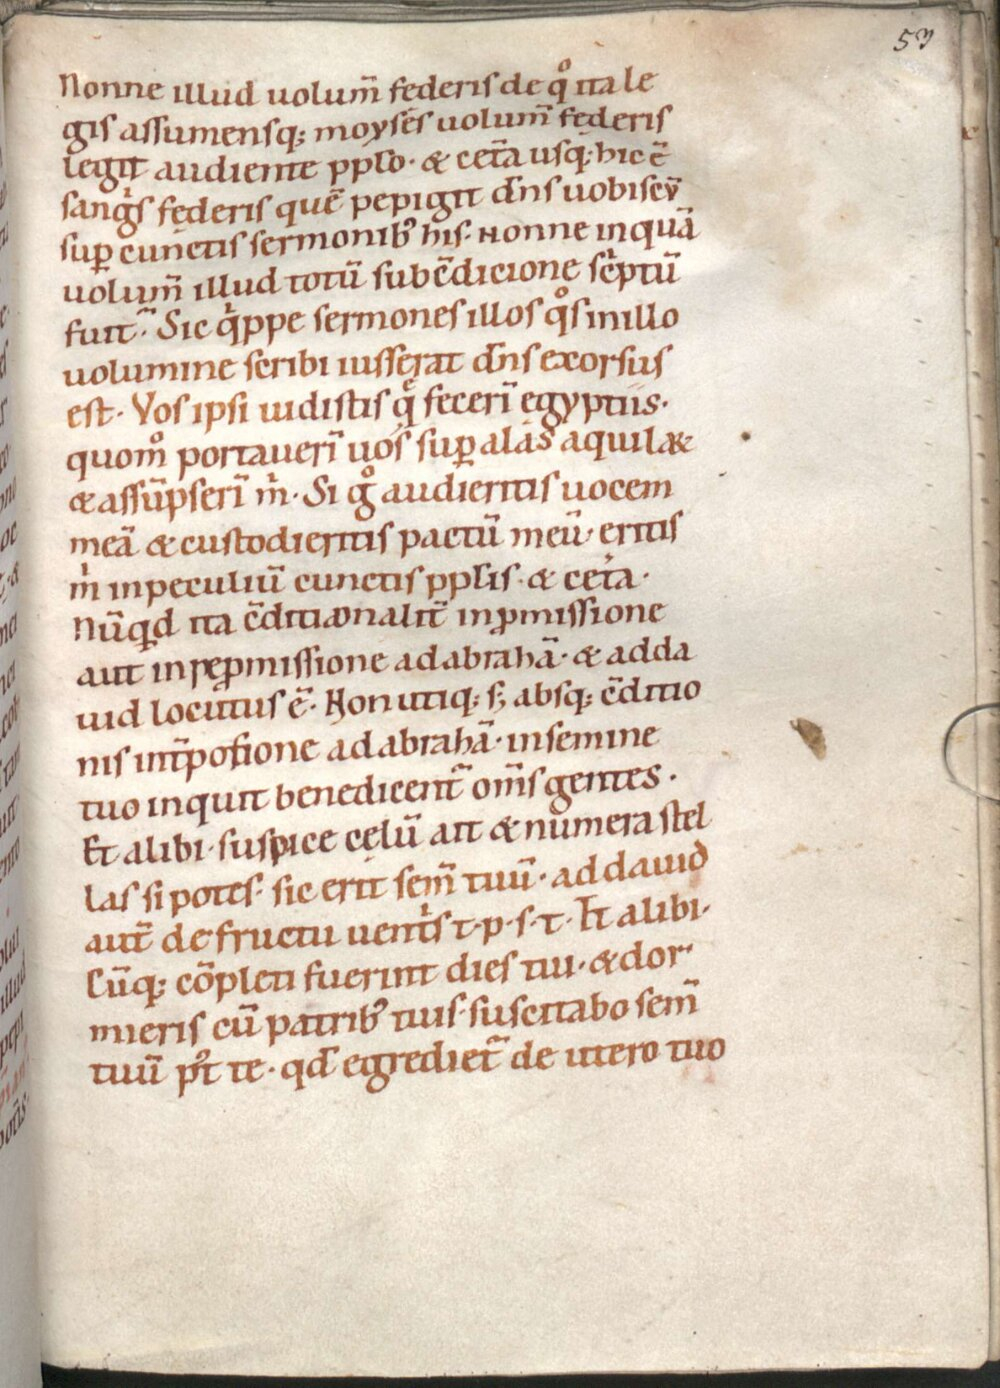 53
Nonne illud uolum̄ federis de qͦ ita le
gis assumensq; moyses uolum̄ federis
legit audiente pplo · & cet̄a usq; hic ē
sangͥs federis quē pepigit dn̄s uobiscū
suꝑ cunctis sermonibꝰ his · Nonne inquā
uolum̄ illud totū sub c̄dicione scͥptū
fuit · Sic qͥppe sermones illos qͦs in illo
uolumine scribi iusserat dn̄s exorsus
est · Vos ipsi uidistis q̄ fecerī egyptiis ·
quom̊ portauerī uos suꝑ alas aquilaꝝ
& assūpserī m̍ · Si gͦ audieritis uocem
meā & custodieritis pactū meū · eritis
m̍ in peculiū cunctis pplis · & cet̍a ·
Nūqͥd ita c̄ditionalit̄ in ꝓmissione
aut in reꝓmissione ad abrahā · & ad da
uid locutus ē · Non utiq; s; absq; c̄ditio
nis int̄posione ad abrahā · in semine
tuo inquit benedicent̄ om̄s gentes ·
Et alibi · suspice celū ait & numera stel
las si potes · sic erit sem̄ tuū · ad dauid
aut̄ de fructu uentͥs t · p · s · t · Et alibi ·
Cūq; cōpleti fuerint dies tui · & dor
mieris cū patribꝰ tuis · suscitabo sem̄
tuū pꝰt te · qd̄ egrediet̄ de utero tuo